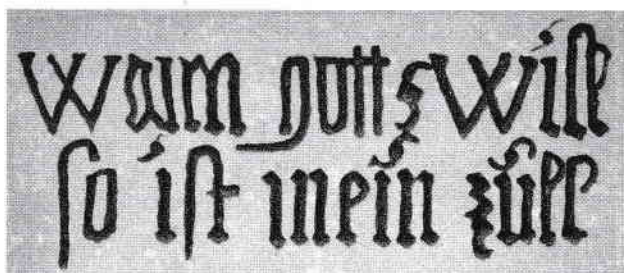 wann gotts will
so ist mein zill